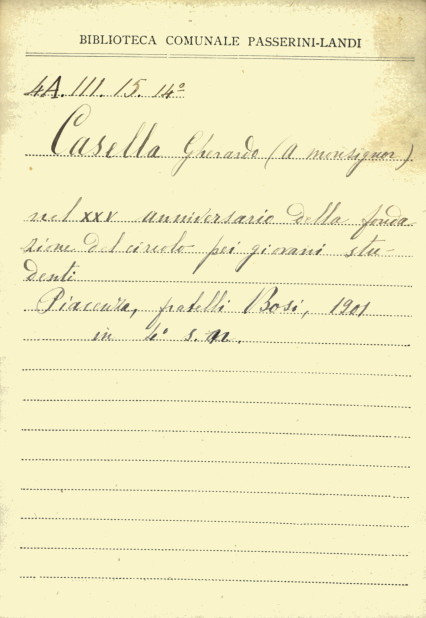 BIBLIOTECA COMUNALE PASSERINI-LANDI
4A.III.15.14º
Casella Gherardo (A monsignor)
nel XXV anniversario della fonda
zione del circolo pei giovani stu-
denti
Piacenza, fratelli Bosi, 1901
in 4º s.n.